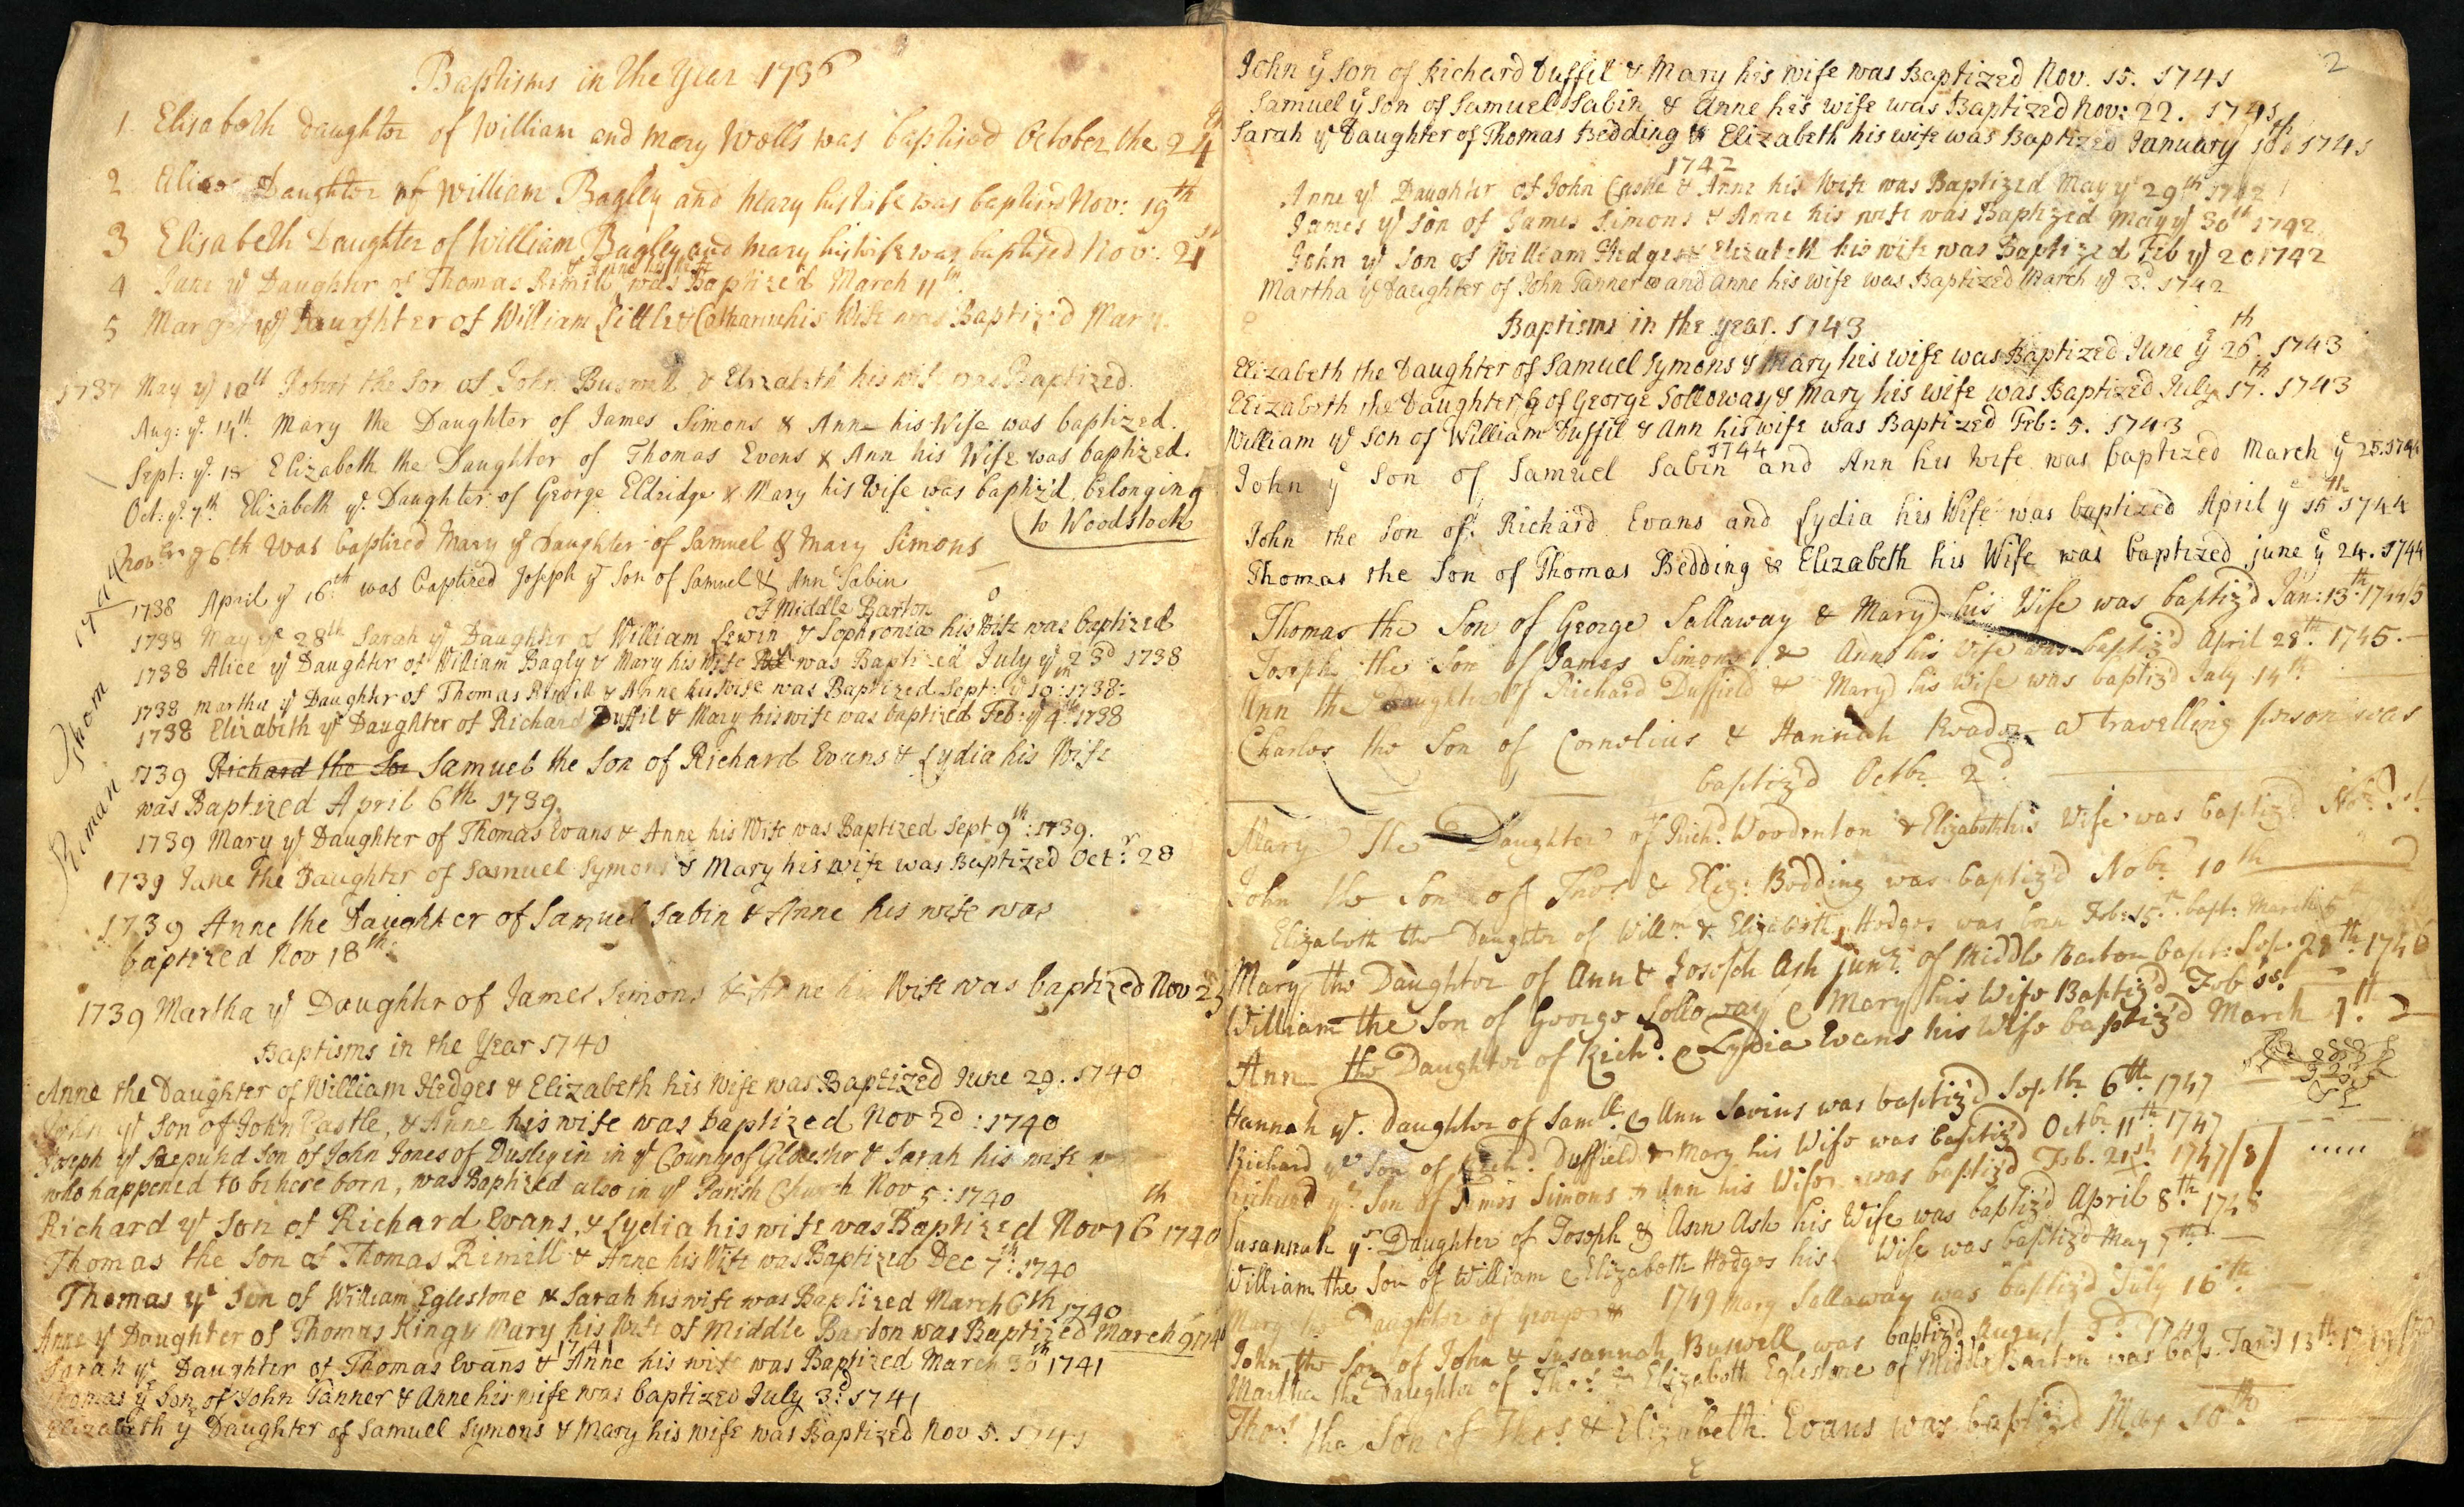 Baptisms in the Year 1736
1. Elisabeth Daughter of William and Mary Wells was baptised October the 24th
2 Alice Daughter of William Bagley and Mary his wife was baptised Nov: 19th
3 Elisabeth Daughter of William Bagley and Mary his wife was baptised Nov: 21st
& Anne his wife
4 Jane ye Daughter of Thomas Rimill was Baptized March 11th
5 Margret ye Daughter of William Little & Catharine his Wife was Baptized Mar
1737 May ye 10th Robert the Son of John Buswell & Elizabeth his wife was Baptized.
Aug: ye 14th Mary the Daughter of James Simons & Ann his Wife was baptized.
Sept: ye 18 Elizabeth the Daughter of Thomas Evens & Ann his Wife was baptized.
Oct: ye 7th Elizabeth ye Daughter of George Eldridge & Mary his Wife was baptiz'd, belonging
to Woodstock
Novbr ye 6th was baptized Mary ye Daughter of Samuel & Mary Simons
1738 April ye 16th was baptized Joseph ye Son of Samuel & Ann Sabin
of Middle Barton
1738 May ye 28th Sarah ye Daughter of William Lewin & Sophronia his Wife was baptized
1738 Alice ye Daughter of William Bagly & Mary his Wife was Baptized July ye 23d 1738
1738 Martha ye Daughter of Thomas Rimill & Anne his Wife was Baptized Sept: ye 10th: 1738:
1738 Elizabeth ye Daughter of Richard Duffil & Mary his wife was baptized Feb: ye 4th 1738
1739 Richard the Son Samuel the Son of Richard Evans & Lydia his Wife
was Baptized April 6th 1739.
1739 Mary ye Daughter of Thomas Evans & Anne his Wife was Baptized Sept 9th: 1739.
1739 Jane The Daughter of Samuel Symons & Mary his wife was Baptized Octr: 28
1739 Anne the Daughter of Samuel Sabin & Anne his wife was
baptized Nov 18th:
1739 Martha ye Daughter of James Simons & Anne his Wife was baptized Nov 25
Baptisms in the Year 1740
Anne the Daughter of William Hedges & Elizabeth his Wife was Baptized June 29. 1740
John ye Son of John Castle, & Anne his wife was baptized Nov 2d: 1740
Joseph ye Son of John Jones of in ye County of & Sarah his wife
who happened to be here born, was Baptized also in ye Parish Church Nov 5: 1740
Richard ye Son of Richard Evans, & Lydia his wife was Baptized Nov 16th 1740
Thomas the Son of Thomas Rimill & Anne his Wife was Baptized Dec 7th: 1740
Thomas ye Son of William Eglestone & Sarah his wife was Baptized March 6th 1740
Anne ye Daughter of Thomas King & Mary his Wife of Middle Barton was Baptized March 9 1740
1741
Sarah ye Daughter of Thomas Evans & Anne his wife was Baptized March 30th 1741
Thomas ye Son of John Tanner & Anne his wife was baptized July 3d: 1741
Elizabeth ye Daughter of Samuel Symons & Mary his wife was Baptized Nov 5. 1741
2
John ye Son of Richard Duffil & Mary his wife was Baptized Nov. 15. 1741
Samuel ye Son of Samuel Sabin & Anne his wife was Baptized Nov: 22. 1741
Sarah ye Daughter of Thomas Bedding & Elizabeth his wife was Baptized January 10th 1741
1742
Anne ye Daughter of John Castle & Anne his Wife was Baptized May ye 29th 1742
James ye Son of James Simons & Anne his wife was Baptized May ye 30th 1742
John ye Son of William Hedges & Elizabeth his wife was Baptized Feb ye 20 1742
Martha ye Daughter of John Tanner and Anne his wife was Baptized March ye 3d 1742
Baptisms in the year. 1743
Elizabeth the Daughter of Samuel Symons & Mary his wife was Baptized June ye 26th. 1743
Elizabeth the Daughter of George Solloway & Mary his wife was Baptized July 17th. 1743
William ye Son of William Duffil & Ann his wife was Baptized Feb: 5. 1743
1744
John ye Son of Samuel Sabin and Ann his Wife was baptized March ye 25. 1744
John the Son of Richard Evans and Lydia his Wife was baptized April ye 15th 1744
Thomas the Son of Thomas Bedding & Elizabeth his Wife was baptized June ye 24. 1744
Thomas the Son of George Sallaway & Mary his Wife was baptiz'd Jan: 13th 1744/5
Joseph the Son of James Simons & Ann his Wife was baptiz'd April 28th 1745.
Ann the Daughter of Richard Duffield & Mary his Wife was baptiz'd July 14th
Charles the Son of Cornelius & Hannah a travelling person was
baptiz'd Octbr 2d
Mary the Daughter of Richd Woodenton & Elizabeth his Wife was baptiz'd Nobr 3d
John the Son of Thos & Eliz: Bedding was baptiz'd Nobr 10th
Elizabeth the Daughter of Willm & Elizabeth Hedges was born Feb: 15th bapt: March 6th
Mary the Daughter of Ann & Joseph Ash junr of Middle Barton bapt: Sep. 28th 1746
William the Son of George Solloway & Mary his Wife Baptiz'd Feb 1st.
Ann the Daughter of Richd. & Lydia Evans his Wife baptiz'd March 1st.
Hannah ye Daughter of Samll & Ann Savins was baptiz'd Septbr 6th 1747
Richard ye Son of Richd Duffield & Mary his Wife was baptiz'd Octbr 11th 1747
Richard ye Son of James Simons & Ann his Wife was baptiz'd Feb. 21st 1747/8/
Susannah ye Daughter of Joseph & Ann Ash his Wife was baptiz'd April 8th 1748
William the Son of William & Elizabeth Hedges his Wife was baptiz'd May 7th
1749
Mary the Daughter of George & Mary Sallaway was baptiz'd July 16th
John the Son of John & Susannah Buswell was baptiz'd August 3d 1749
Martha the Daughter of Thos & Elizabeth Eglestone of Middle Barton was bap. Janry 13th 1749/50
Thos the Son of Thos & Elizabeth Evans was baptiz'd May 10th